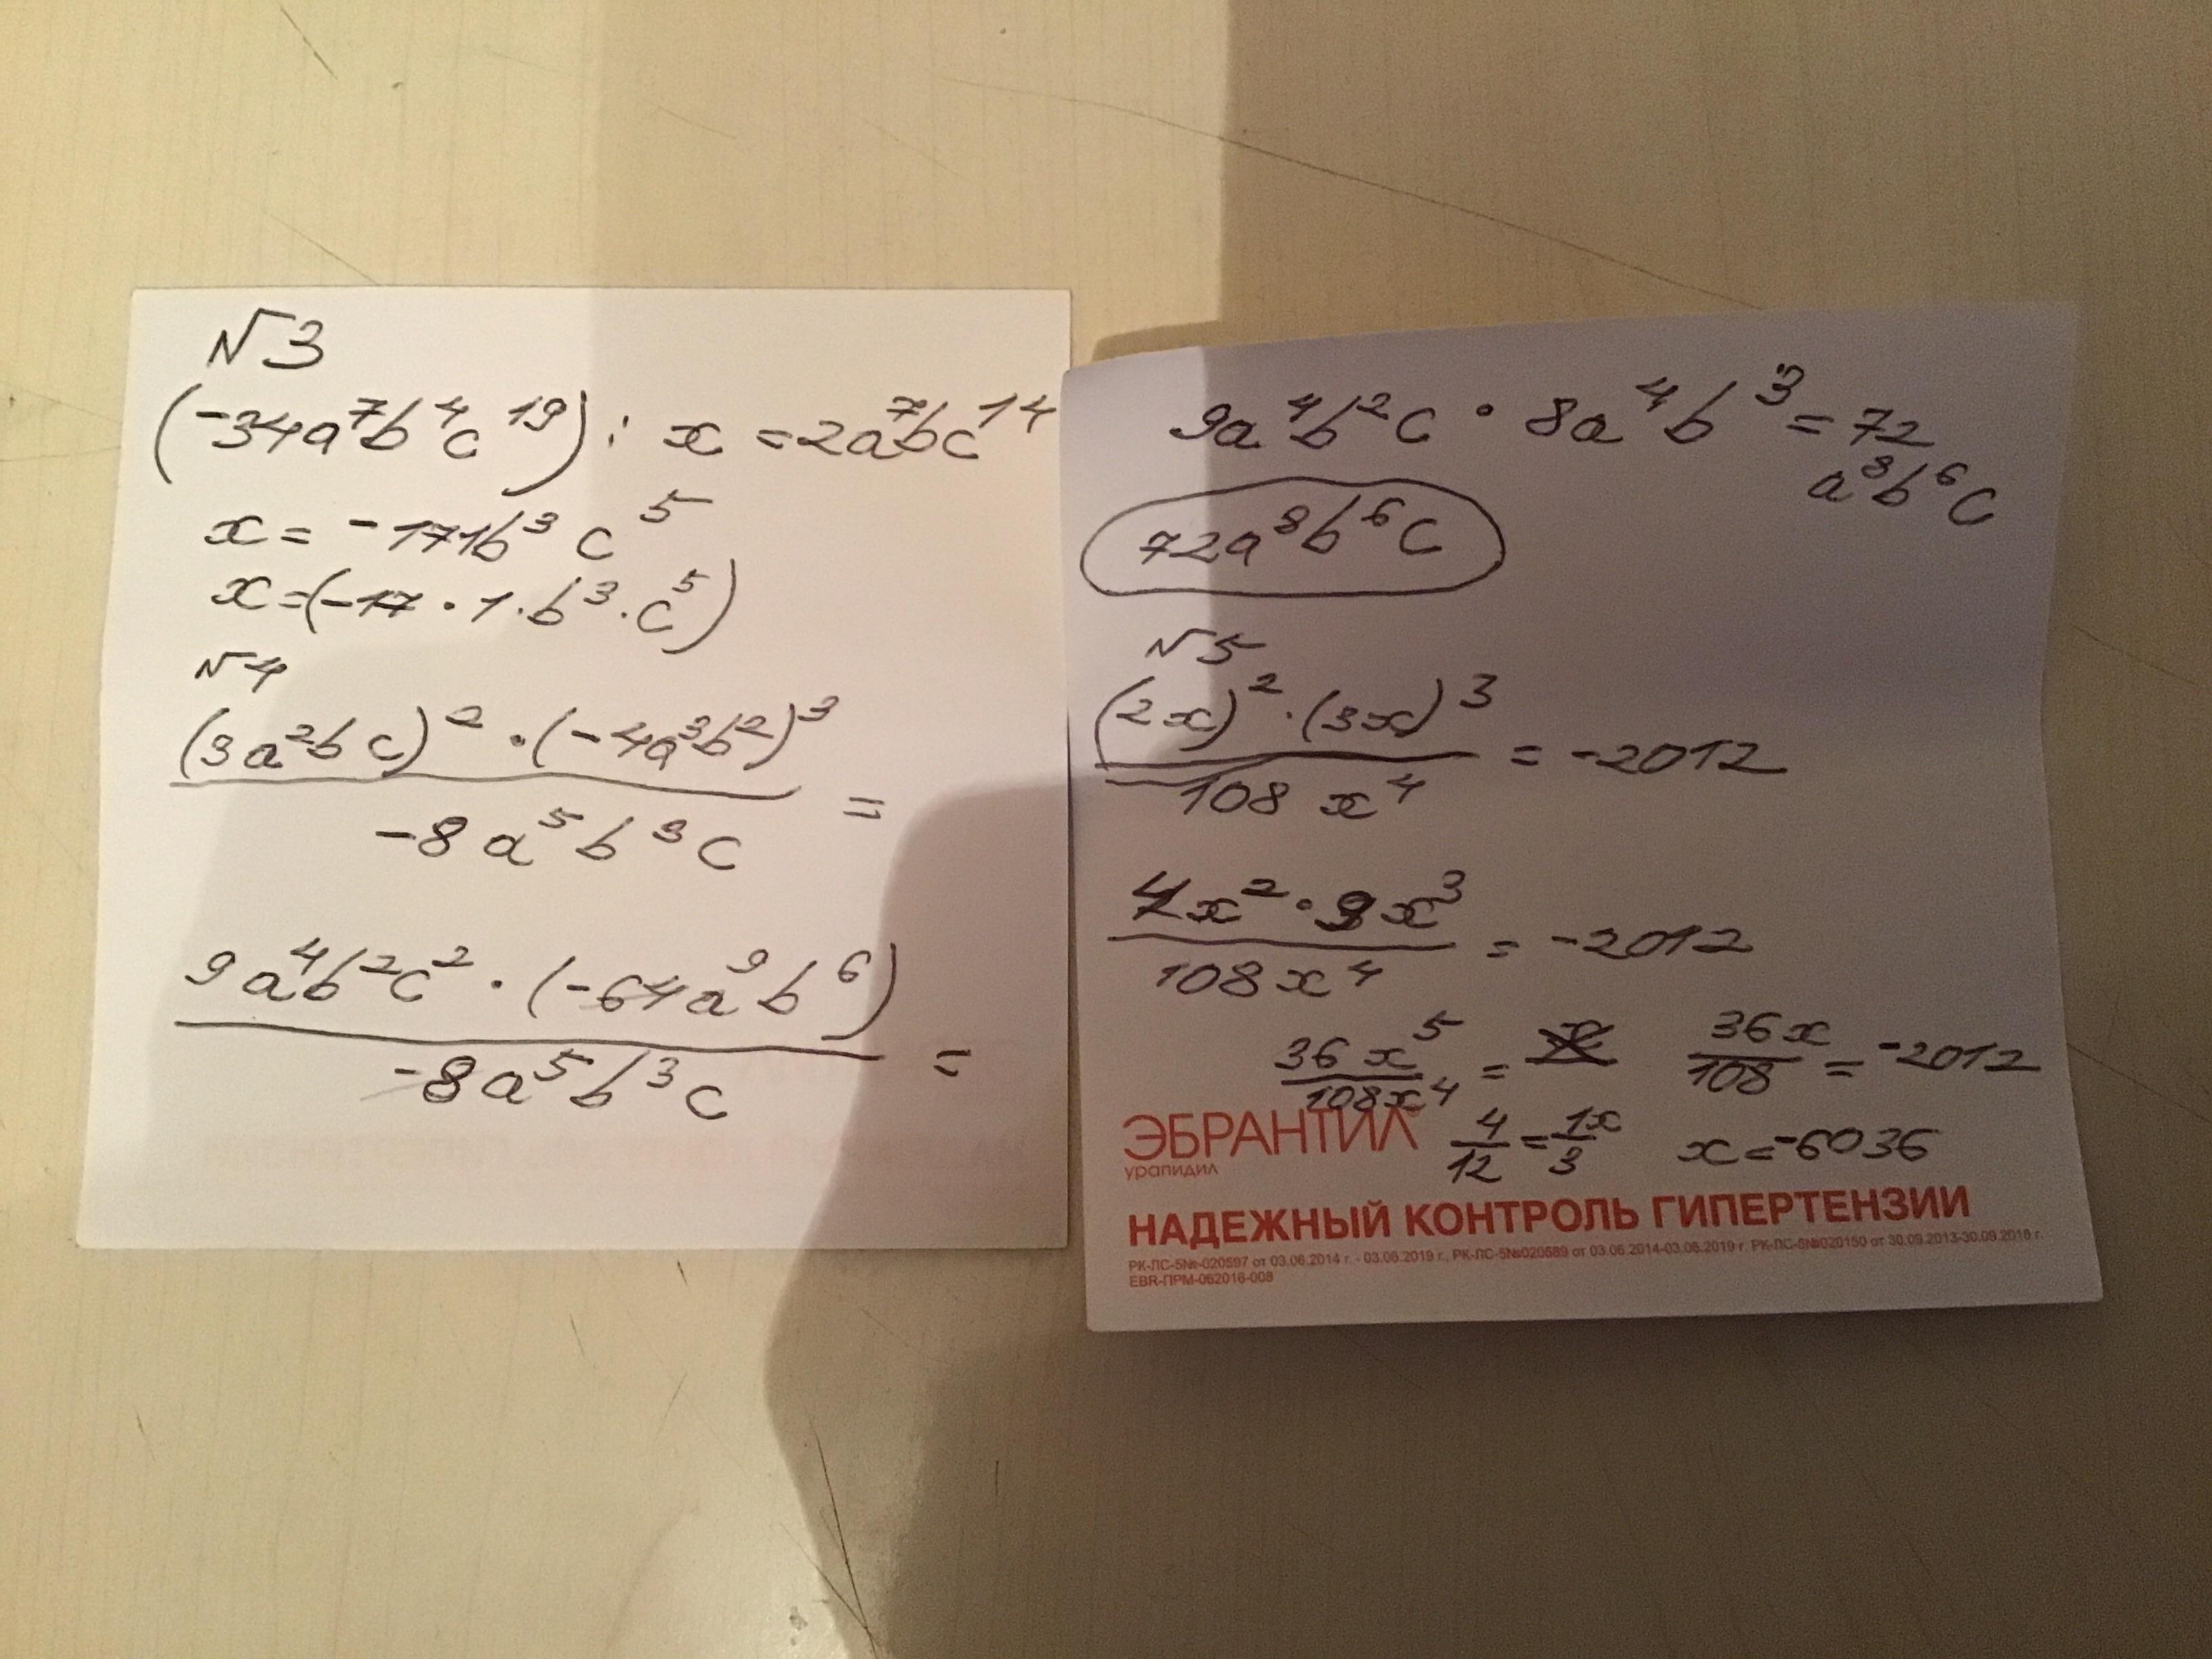 №3
(-34a⁷b⁴c¹⁹) : x = 2a⁷bc¹⁴
x = -171b³c⁵
x=(-17 · 1 · b³ · c⁵)
№4
(3a²bc)² · (-4a³b²)³
-8a⁵b³c =
9a⁴b²c² · (-64a⁹b⁶)
-8a⁵b³c =
9a⁴b²c · 8a⁴b³ = 72
a⁸b⁶c
72a⁸b⁶c
№5
(2x)² · (3x)³
108x⁴ = -2012
4x² · 9x³
108x⁴ = -2012
36x⁵
108x⁴ =
36x
108 = -2012
4/12 = 1x/3
x = -6036
ЭБРАНТИЛ®
урапидил
НАДЕЖНЫЙ КОНТРОЛЬ ГИПЕРТЕНЗИИ
РК-ЛС-5№-020597 от 03.06.2014 г. - 03.06.2019 г., РК-ЛС-5№020589 от 03.06.2014-03.06.2019 г. РК-ЛС-5№020150 от 30.09.2013-30.09.2018 г.
EBR-ПРМ-062016-008